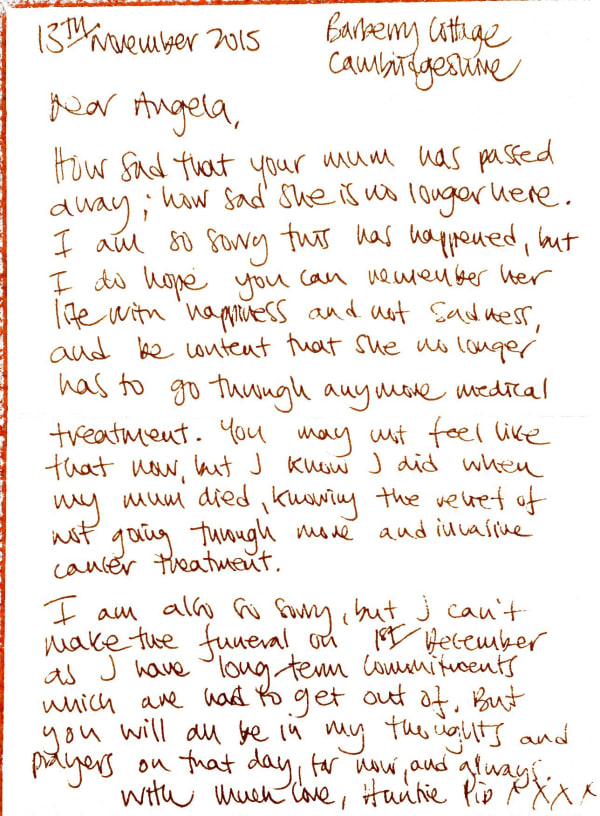 13TH November 2015
Barberry Cottage
Cambridgeshire
Dear Angela,
How sad that your mum has passed
away; how sad she is no longer here.
I am so sorry this has happened, but
I do hope you can remember her
life with happiness and not sadness,
and be content that she no longer
has to go through anymore medical
treatment. You may not feel like
that now, but I know I did when
my mum died, knowing the relief of
not going through more and invasive
cancer treatment.
I am also so sorry, but I can't
make the funeral on 1st December
as I have long-term commitments
which are hard to get out of. But
you will all be in my thoughts and
prayers on that day, for now, and always.
With much love, Auntie Pip X X X X